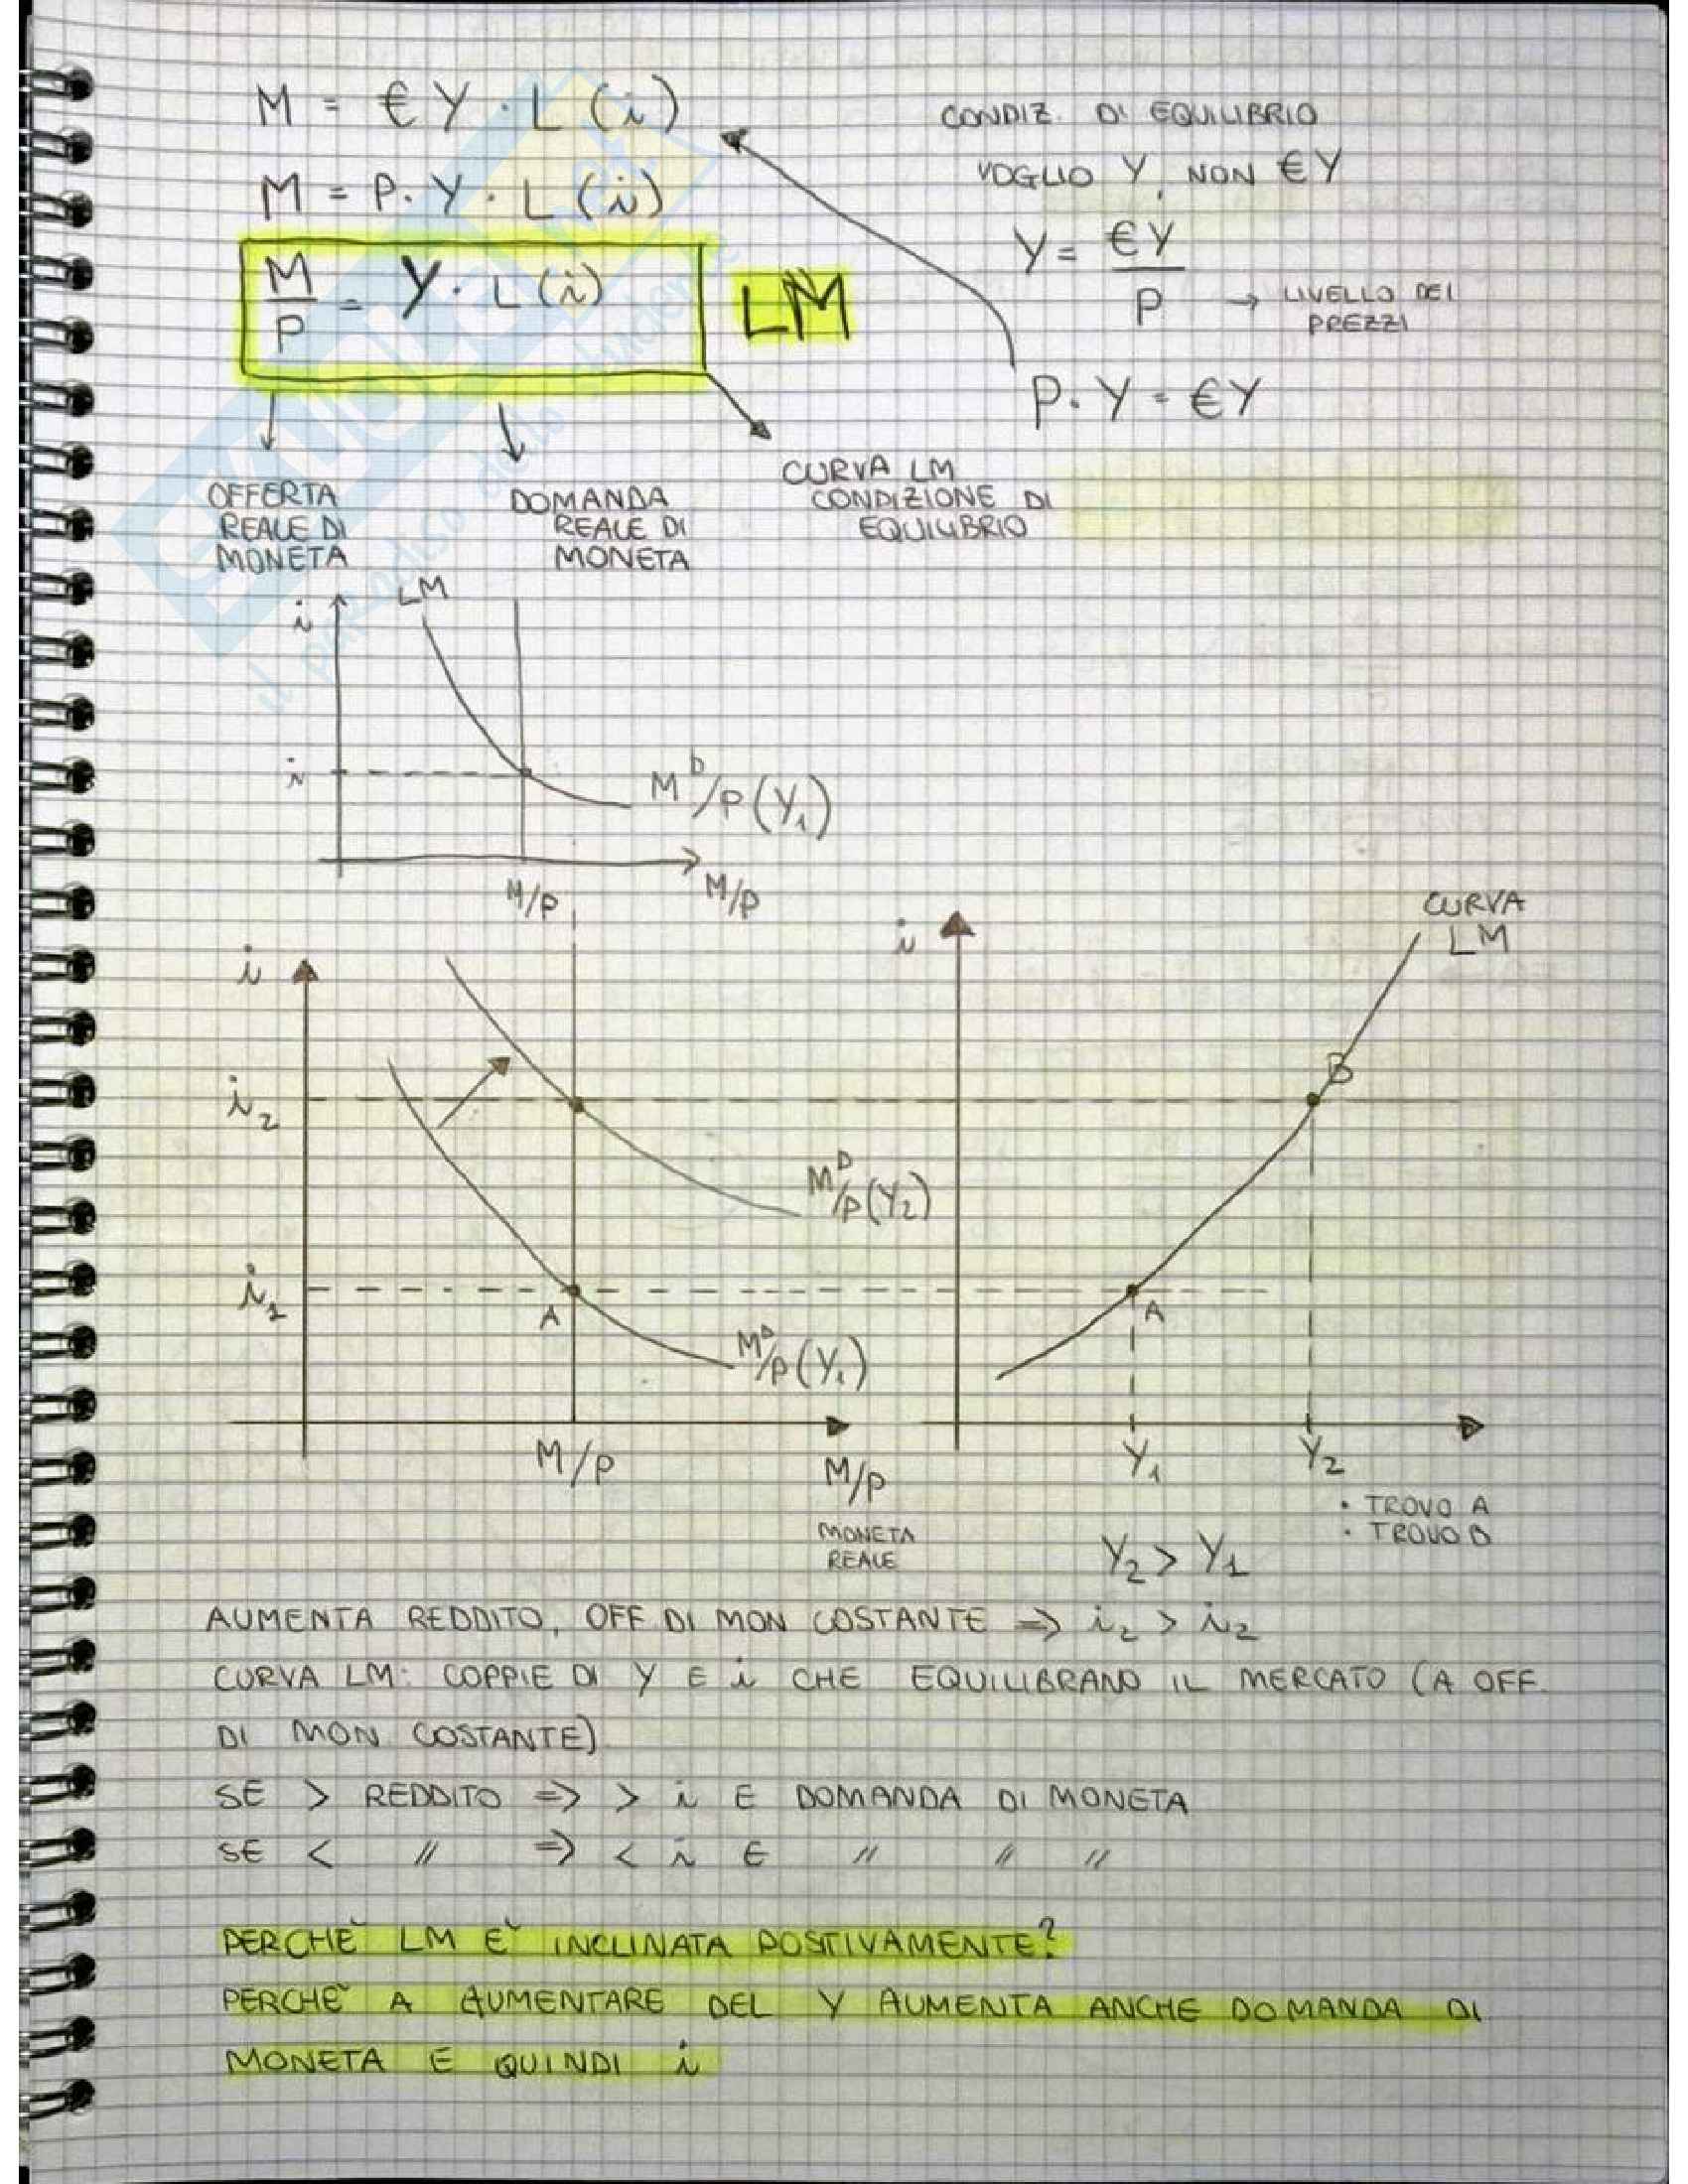 M = € Y · L (i)
CONDIZ. DI EQUILIBRIO
VOGLIO Y, NON € Y
M = P. Y · L (i)
Y = €Y
P → LIVELLO DEI
PREZZI
M
P
= Y · L (i)
LM
P. Y = €Y
OFFERTA
REALE DI
MONETA
DOMANDA
REALE DI
MONETA
CURVA LM
CONDIZIONE DI
EQUILIBRIO
i
LM
i
M^D/P (Y₁)
M/P
M/P
i
i₂
i₁
A
M^D/P (Y₂)
M^D/P (Y₁)
M/P
M/P
MONETA
REALE
i
CURVA
LM
B
A
Y₁
Y₂
· TROVO A
· TROVO B
Y₂ > Y₁
AUMENTA REDDITO, OFF DI MON COSTANTE => i₂ > i₂
CURVA LM: COPPIE DI Y E i CHE EQUILIBRANO IL MERCATO (A OFF.
DI MON COSTANTE)
SE > REDDITO => > i E DOMANDA DI MONETA
SE < " => < i E " " "
PERCHÈ LM È INCLINATA POSITIVAMENTE?
PERCHÈ A AUMENTARE DEL Y AUMENTA ANCHE DOMANDA DI
MONETA E QUINDI i